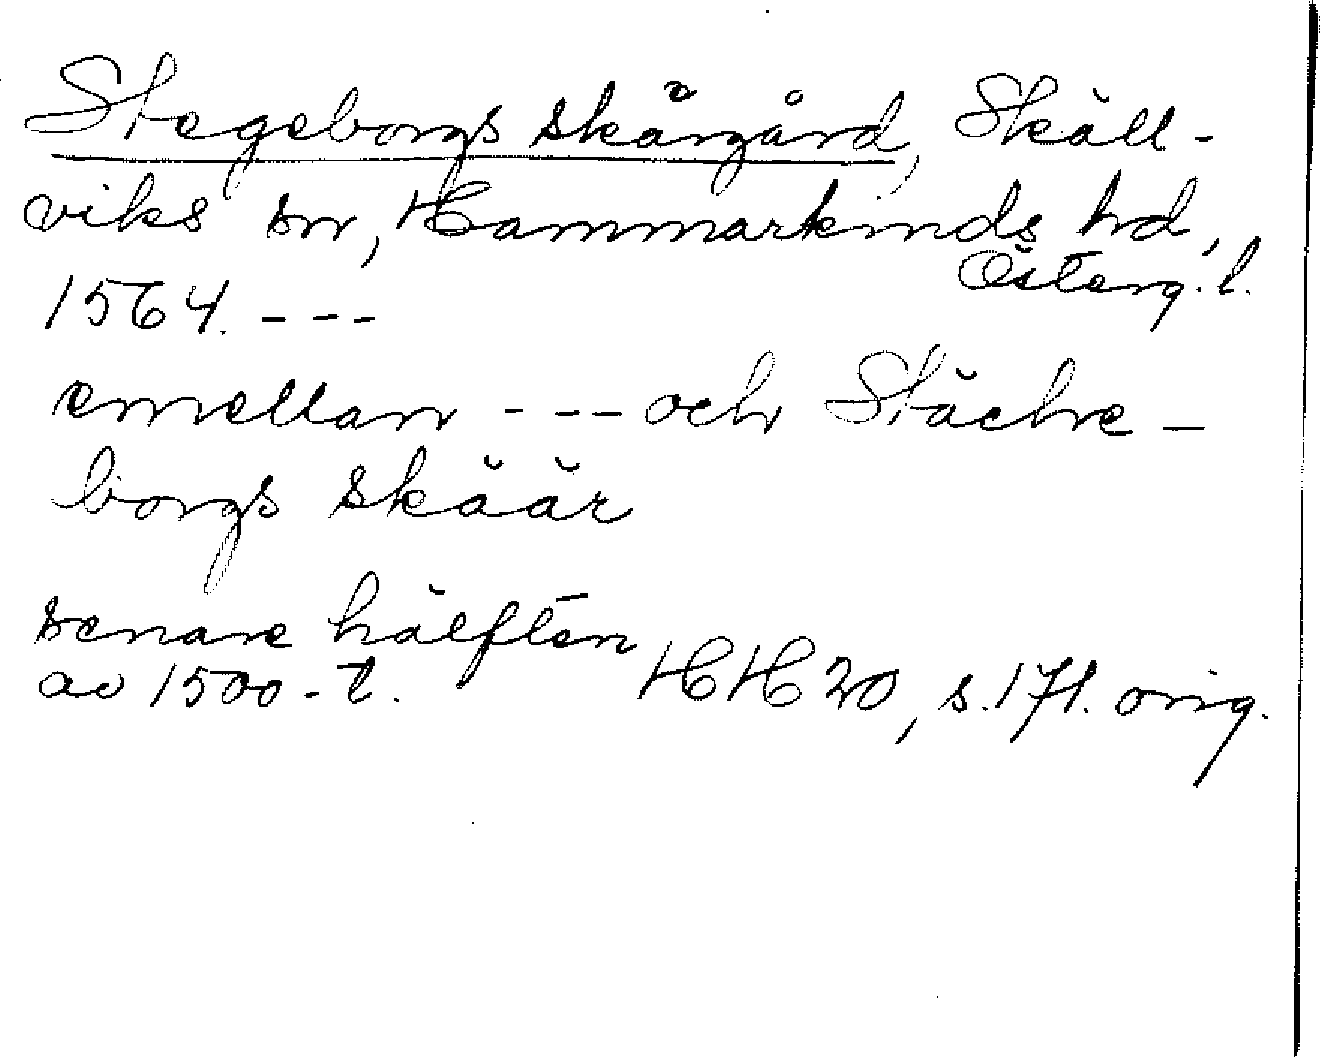 Stegeborgs skärgård, Skäll-
viks sn, Hammarkinds hd,
Österg. l.
1564. - - -
emellan - - - och Stäche-
borgs skäär
senare hälften
av 1500-t. HH 20, s. 171. orig.